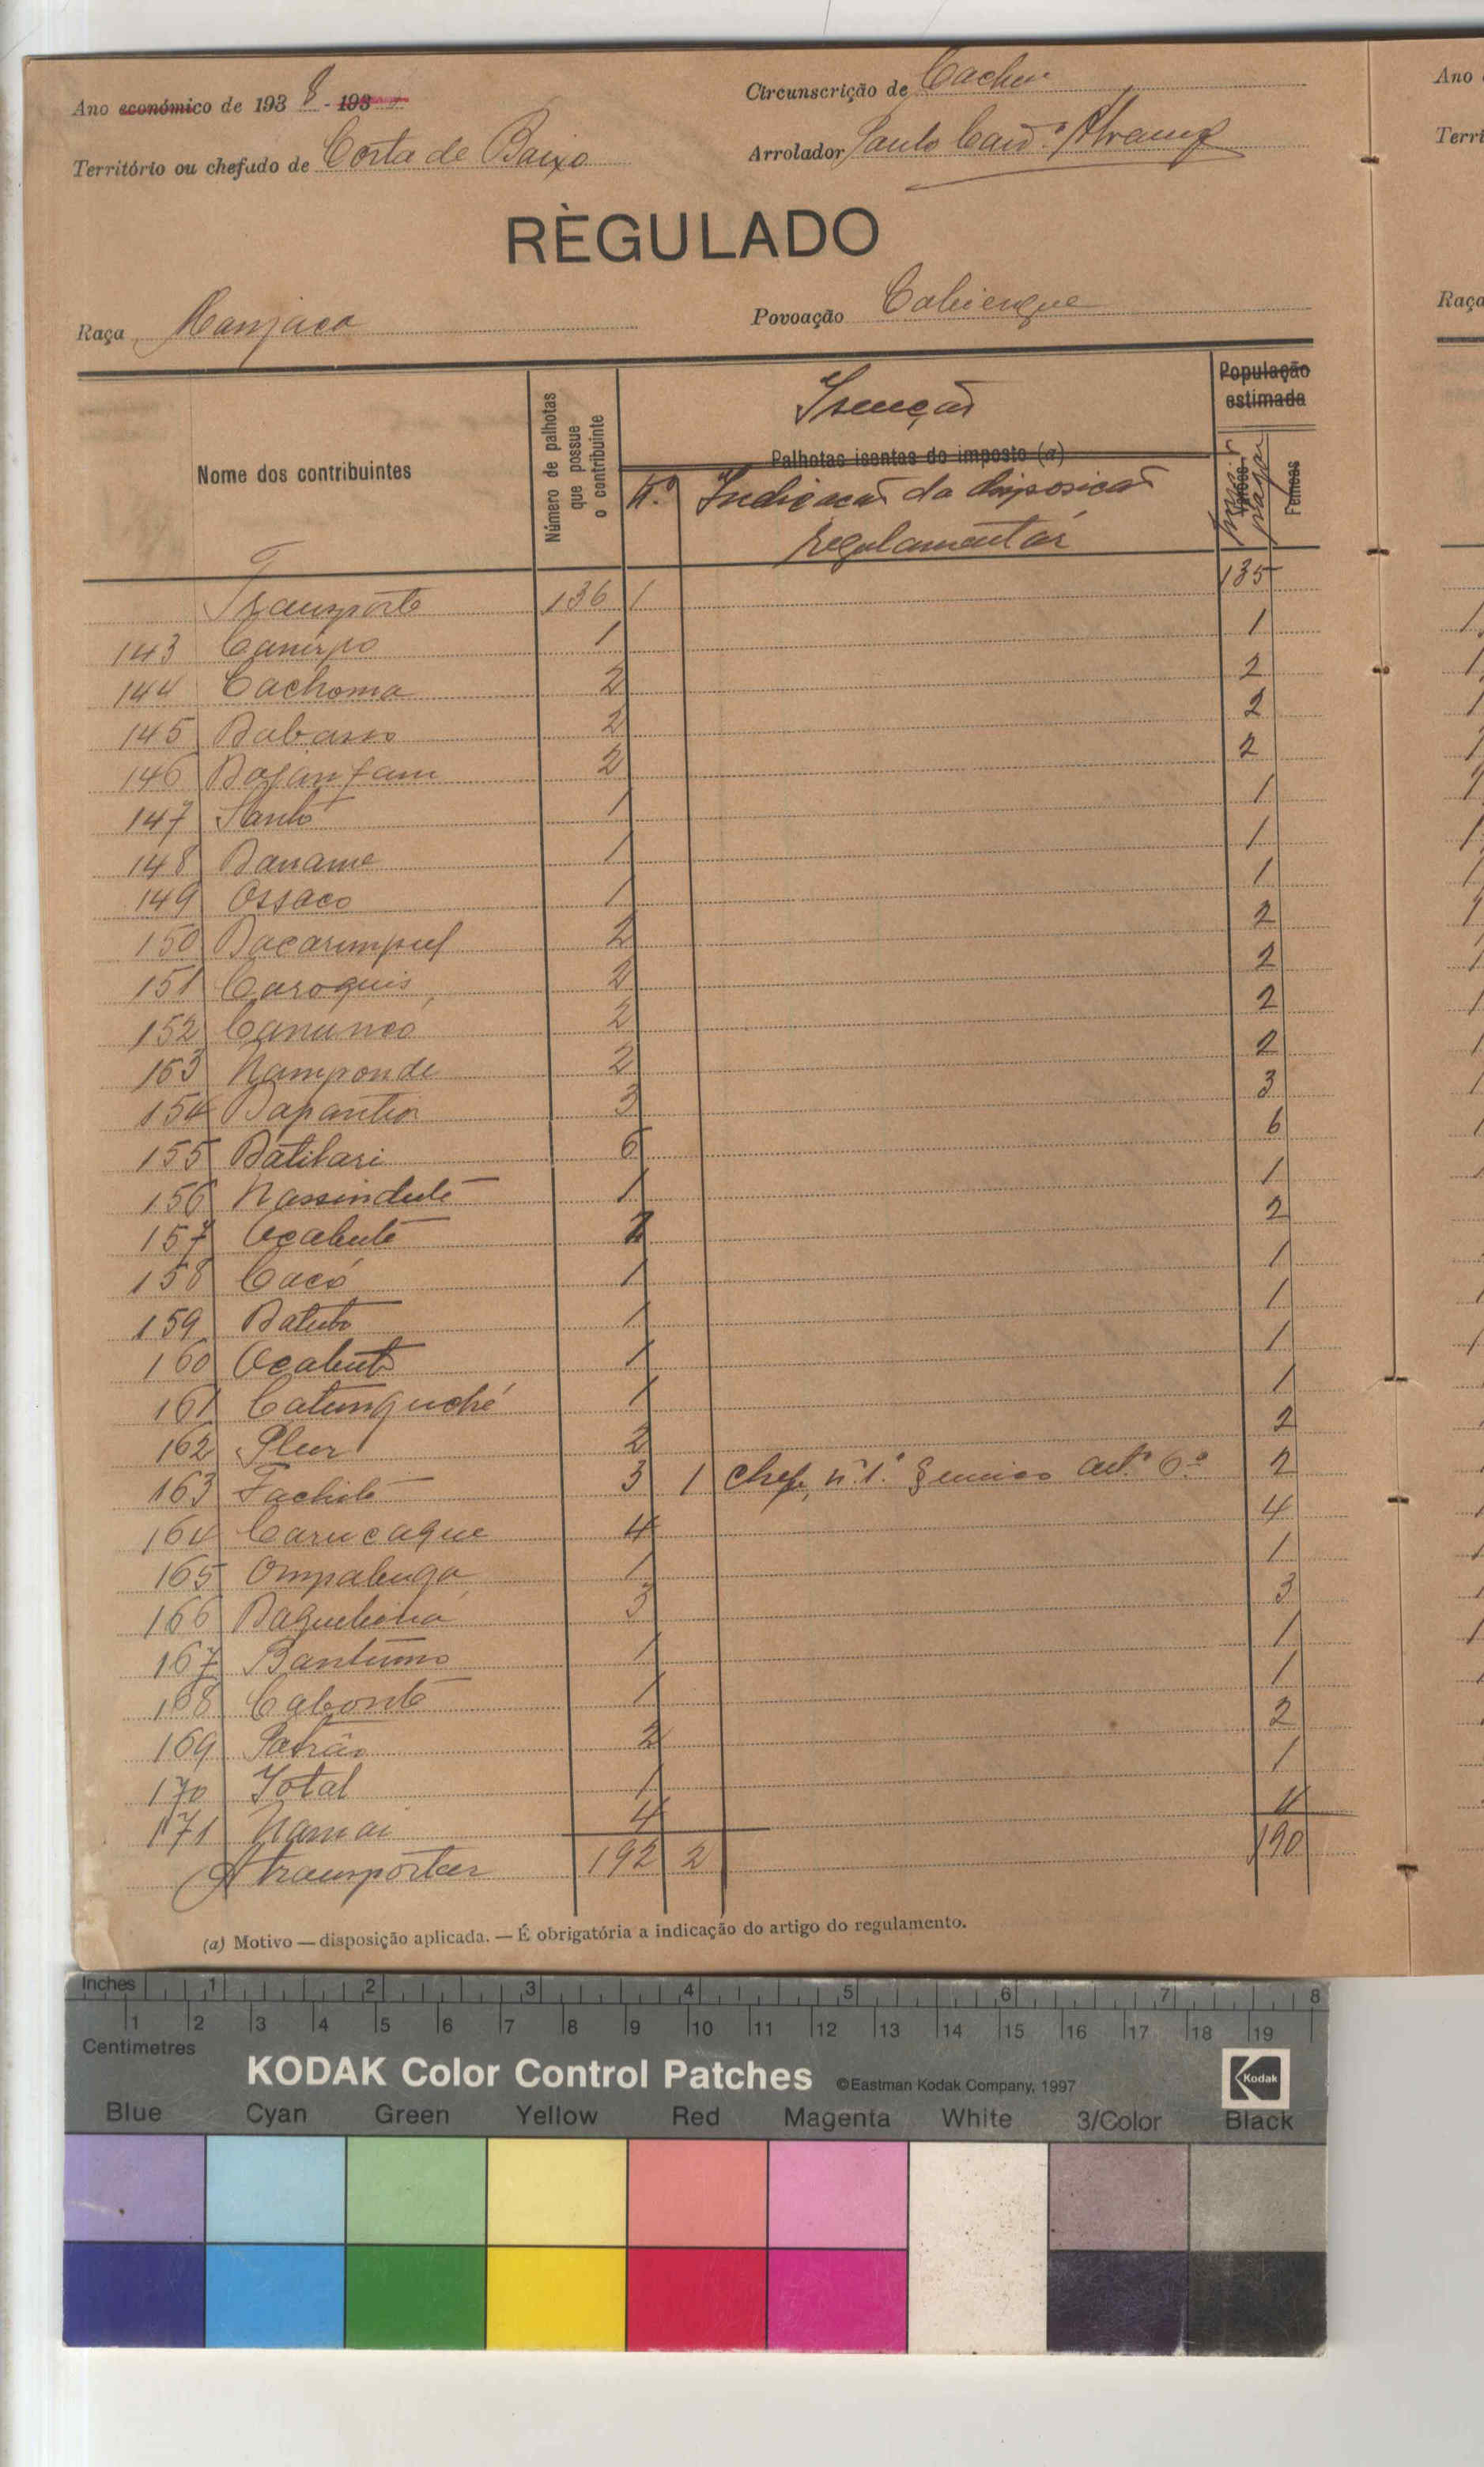 Ano económico de 1938 - 193
Circunscrição de Cacheu
Território ou chefado de Costa de Baixo
Arrolador Paulo
RÈGULADO
Raça Manjaca
Povoação Cabienque
Nome dos contribuintes
Número de palhotas que possue o contribuinte
Isenção
Palhotas isentas do imposto (a)
N.º Indicação da disposição regulamentar
População estimada
Femeas
Transporte 136 1 135
143 Canirpo 1 1
144 Cachoma 2 2
145 Babasso 2 2
146 2 2
147 Santo 1 1
148 Daname 1 1
149 Ossaco 1 1
150 2 2
151 Caroquis 2 2
152 Canuncó 2 2
153 Namponde 2 2
154 3 3
155 Batilari 6 6
156 Nassindute 1 1
157 Ocabute 2 2
158 Cacó 1 1
159 Batuto 1 1
160 Ocabute 1 1
161 Catunguché 1 1
162 Pleur 2 2
163 3 1 Chefe, n.º 1.º § unico art.º 6.º 2
164 Carucaque 4 4
165 Ompabuga 1 1
166 3 3
167 Bantumo 1 1
168 Cabonte 1 1
169 Patrão 2 2
170 Total 1 1
171 Namai 4 4
A transportar 192 2 190
(a) Motivo — disposição aplicada. — É obrigatória a indicação do artigo do regulamento.
Inches 1 2 3 4 5 6 7 8
1 2 3 4 5 6 7 8 9 10 11 12 13 14 15 16 17 18 19
Centimetres
KODAK Color Control Patches ©Eastman Kodak Company, 1997 Kodak
Blue Cyan Green Yellow Red Magenta White 3/Color Black
Ano
Terri
Raça